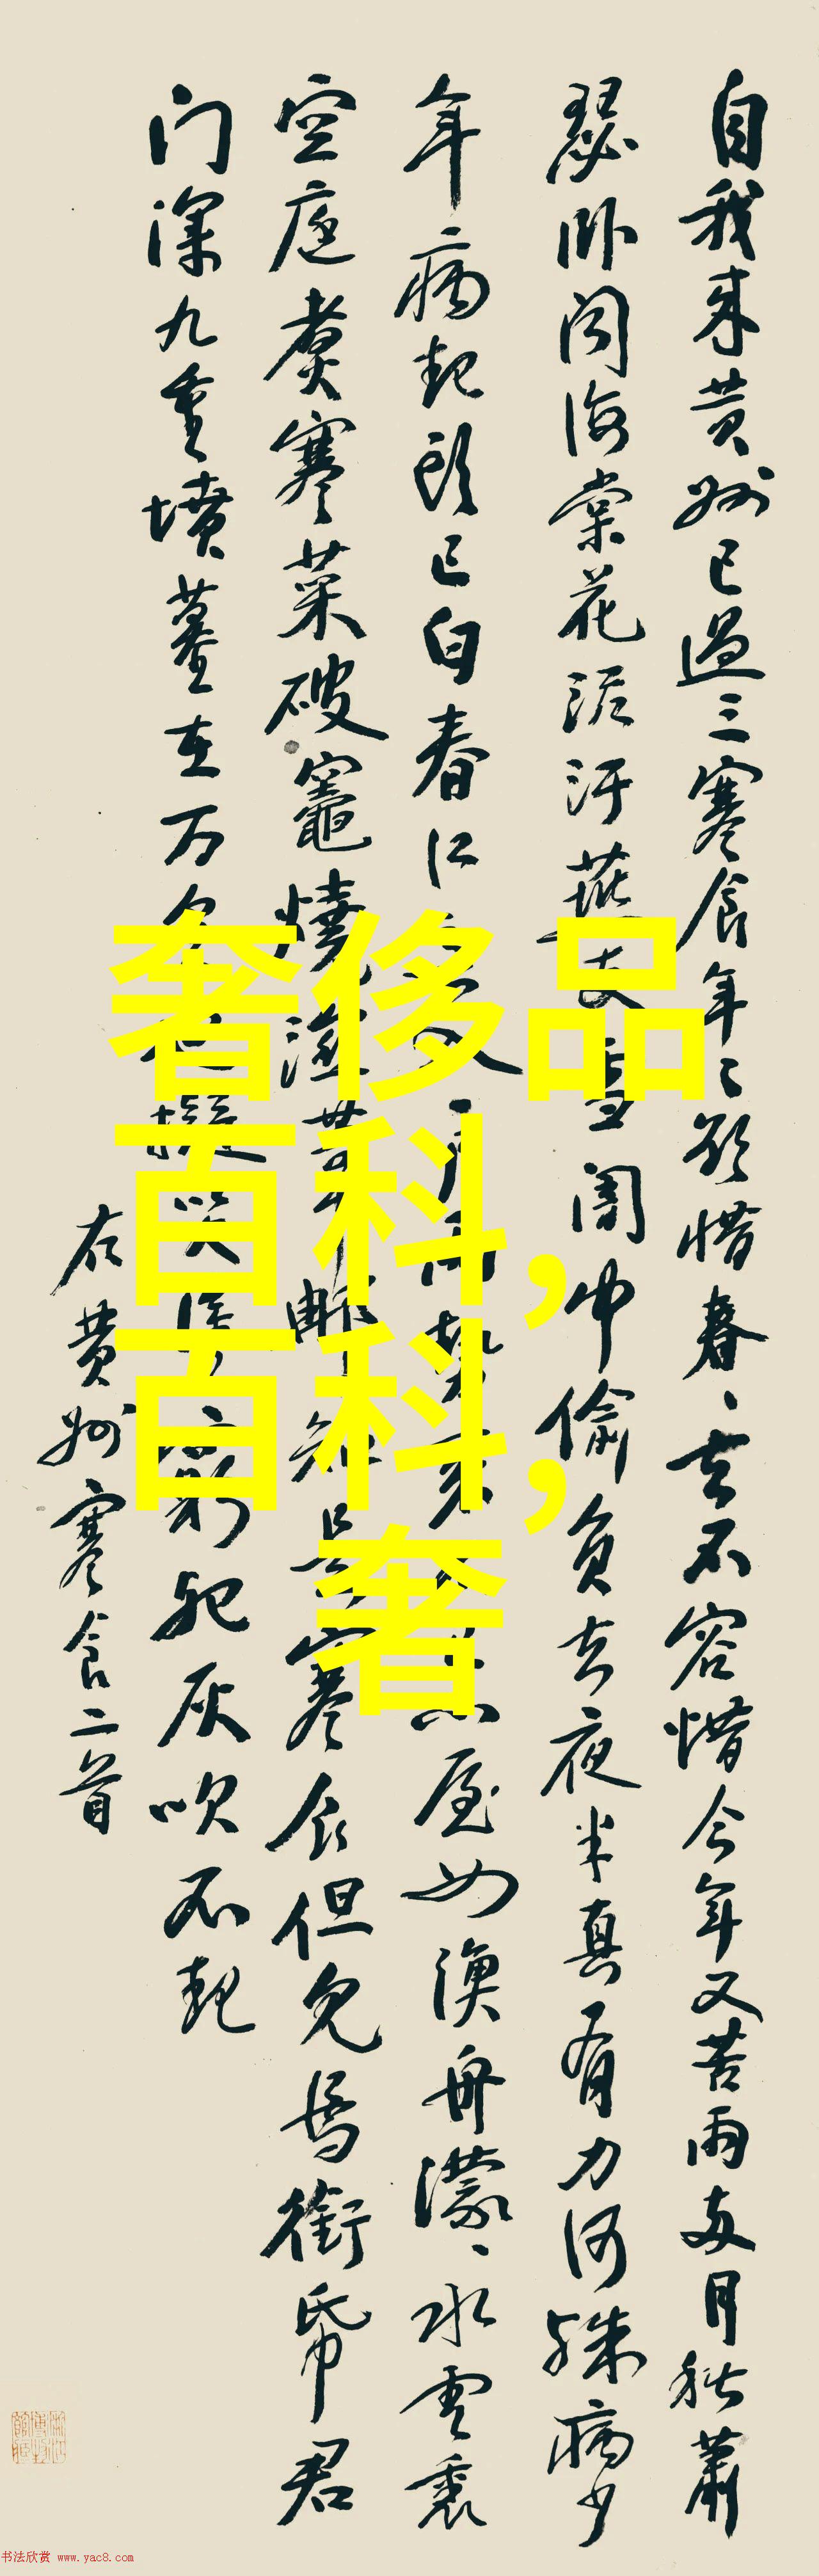 自我来黄州已過三寒食年〻欲惜春〻去不容惜今年又苦雨两月秋蕭
瑟卧闻海棠花泥汙燕支雪闇中偷負去夜半真有力何殊病少
年病起頭已白春江欲入户雨勢来不已小屋如漁舟濛〻水雲裏
空庖煮寒菜破竈燒濕葦那知是寒食但見烏銜帋君
门深九重墳墓在万里也擬哭塗窮死灰吹不起
右黄州寒食二首
奢侈品
百科,
百科,
奢
书法欣赏 www.yac8.com